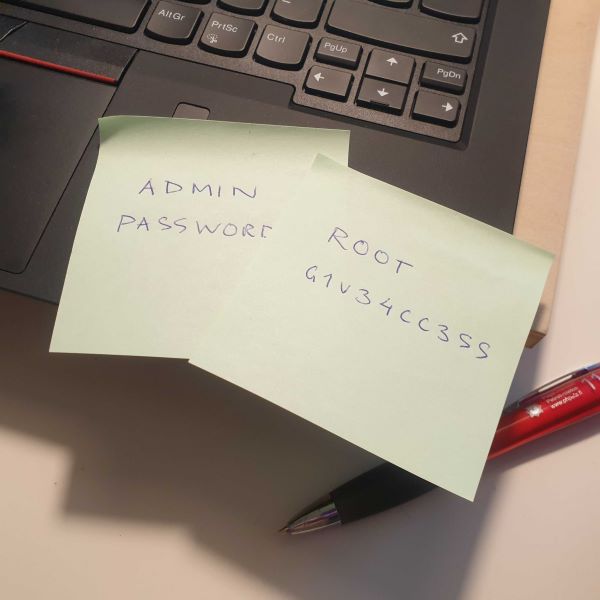 AltGr
PrtSc
Ctrl
PgUp
PgDn
ADMIN
PASSWORD
ROOT
G1V34CC3SS